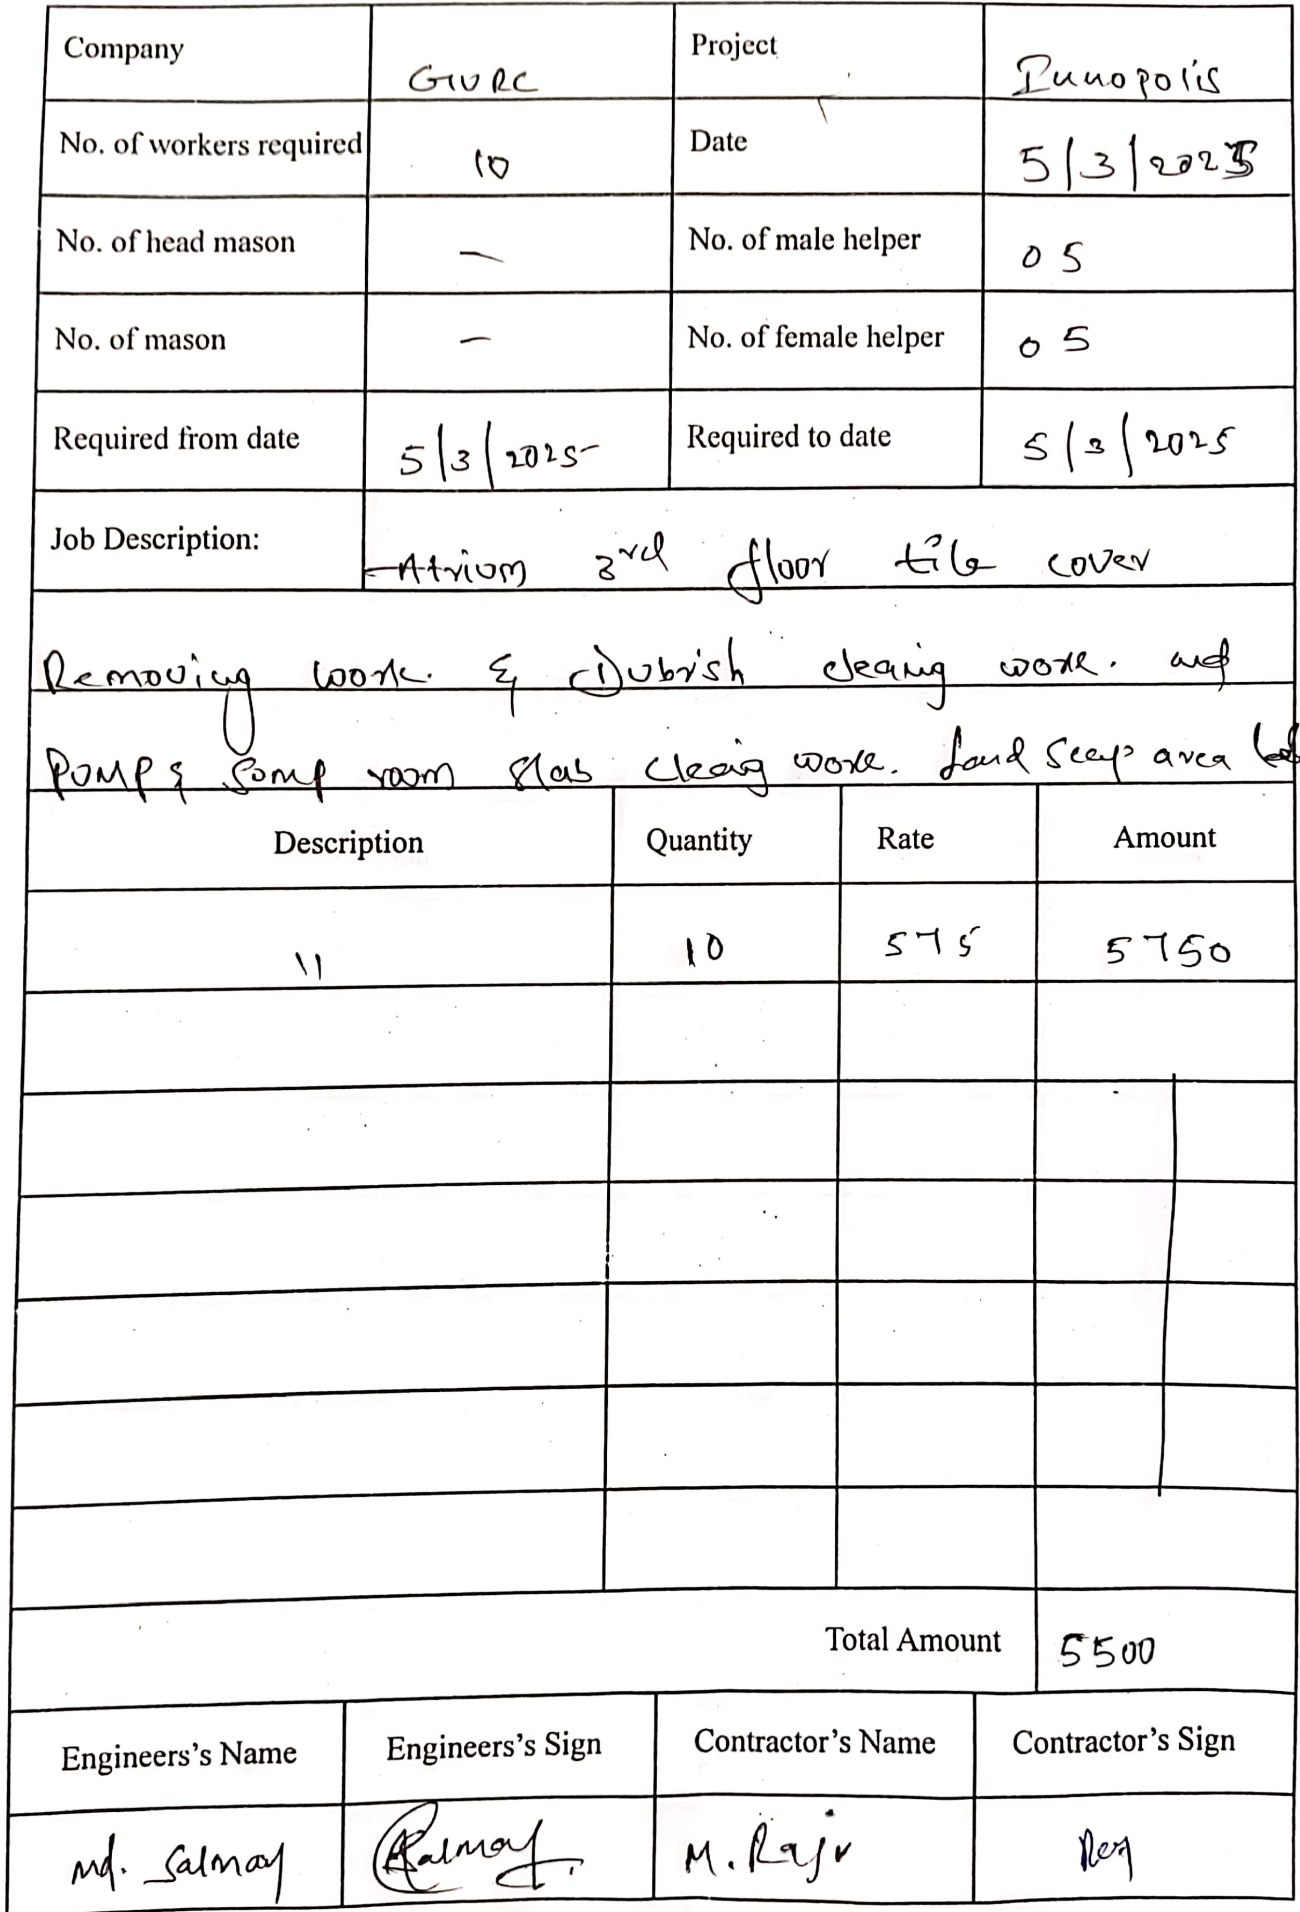 Company GVRC Project Innopolis
No. of workers required 10 Date 5/3/2025
No. of head mason – No. of male helper 05
No. of mason – No. of female helper 05
Required from date 5/3/2025 Required to date 5/3/2025
Job Description: Atrium 3rd floor tile cover
Removing work. & Dubrish cleaing work. and
Pump & Somp room slab cleaig work. Land Scep area
Description Quantity Rate Amount
" 10 575 5750
Total Amount 5500
Engineers's Name Engineers's Sign Contractor's Name Contractor's Sign
Md. Salman Salman M. Raju